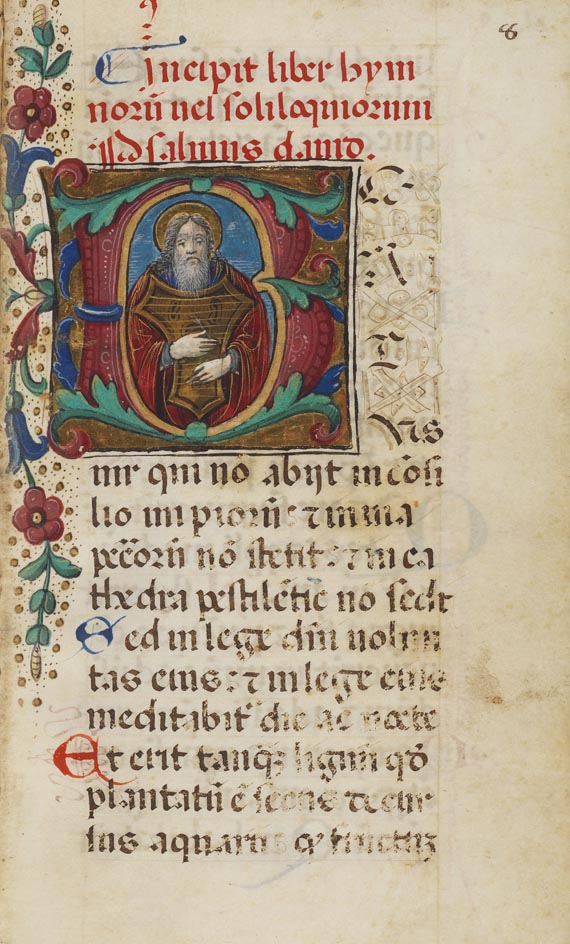 8
Incipit liber hym
norū uel soliloquiorum
Psalmus dauid.
B
E
A
T
VS
uir qui nō abijt in cōsi
lio impiorū: ⁊ in uia
peccorū nō stetit: ⁊ in ca
thedra pestilētie nō sedit
Sed in lege dn̄i uolun
tas eius: ⁊ in lege eius
meditabit̄ die ac nocte
Et erit tanq̄ lignū qd̄
plantatū ē secus decur
sus aquarū